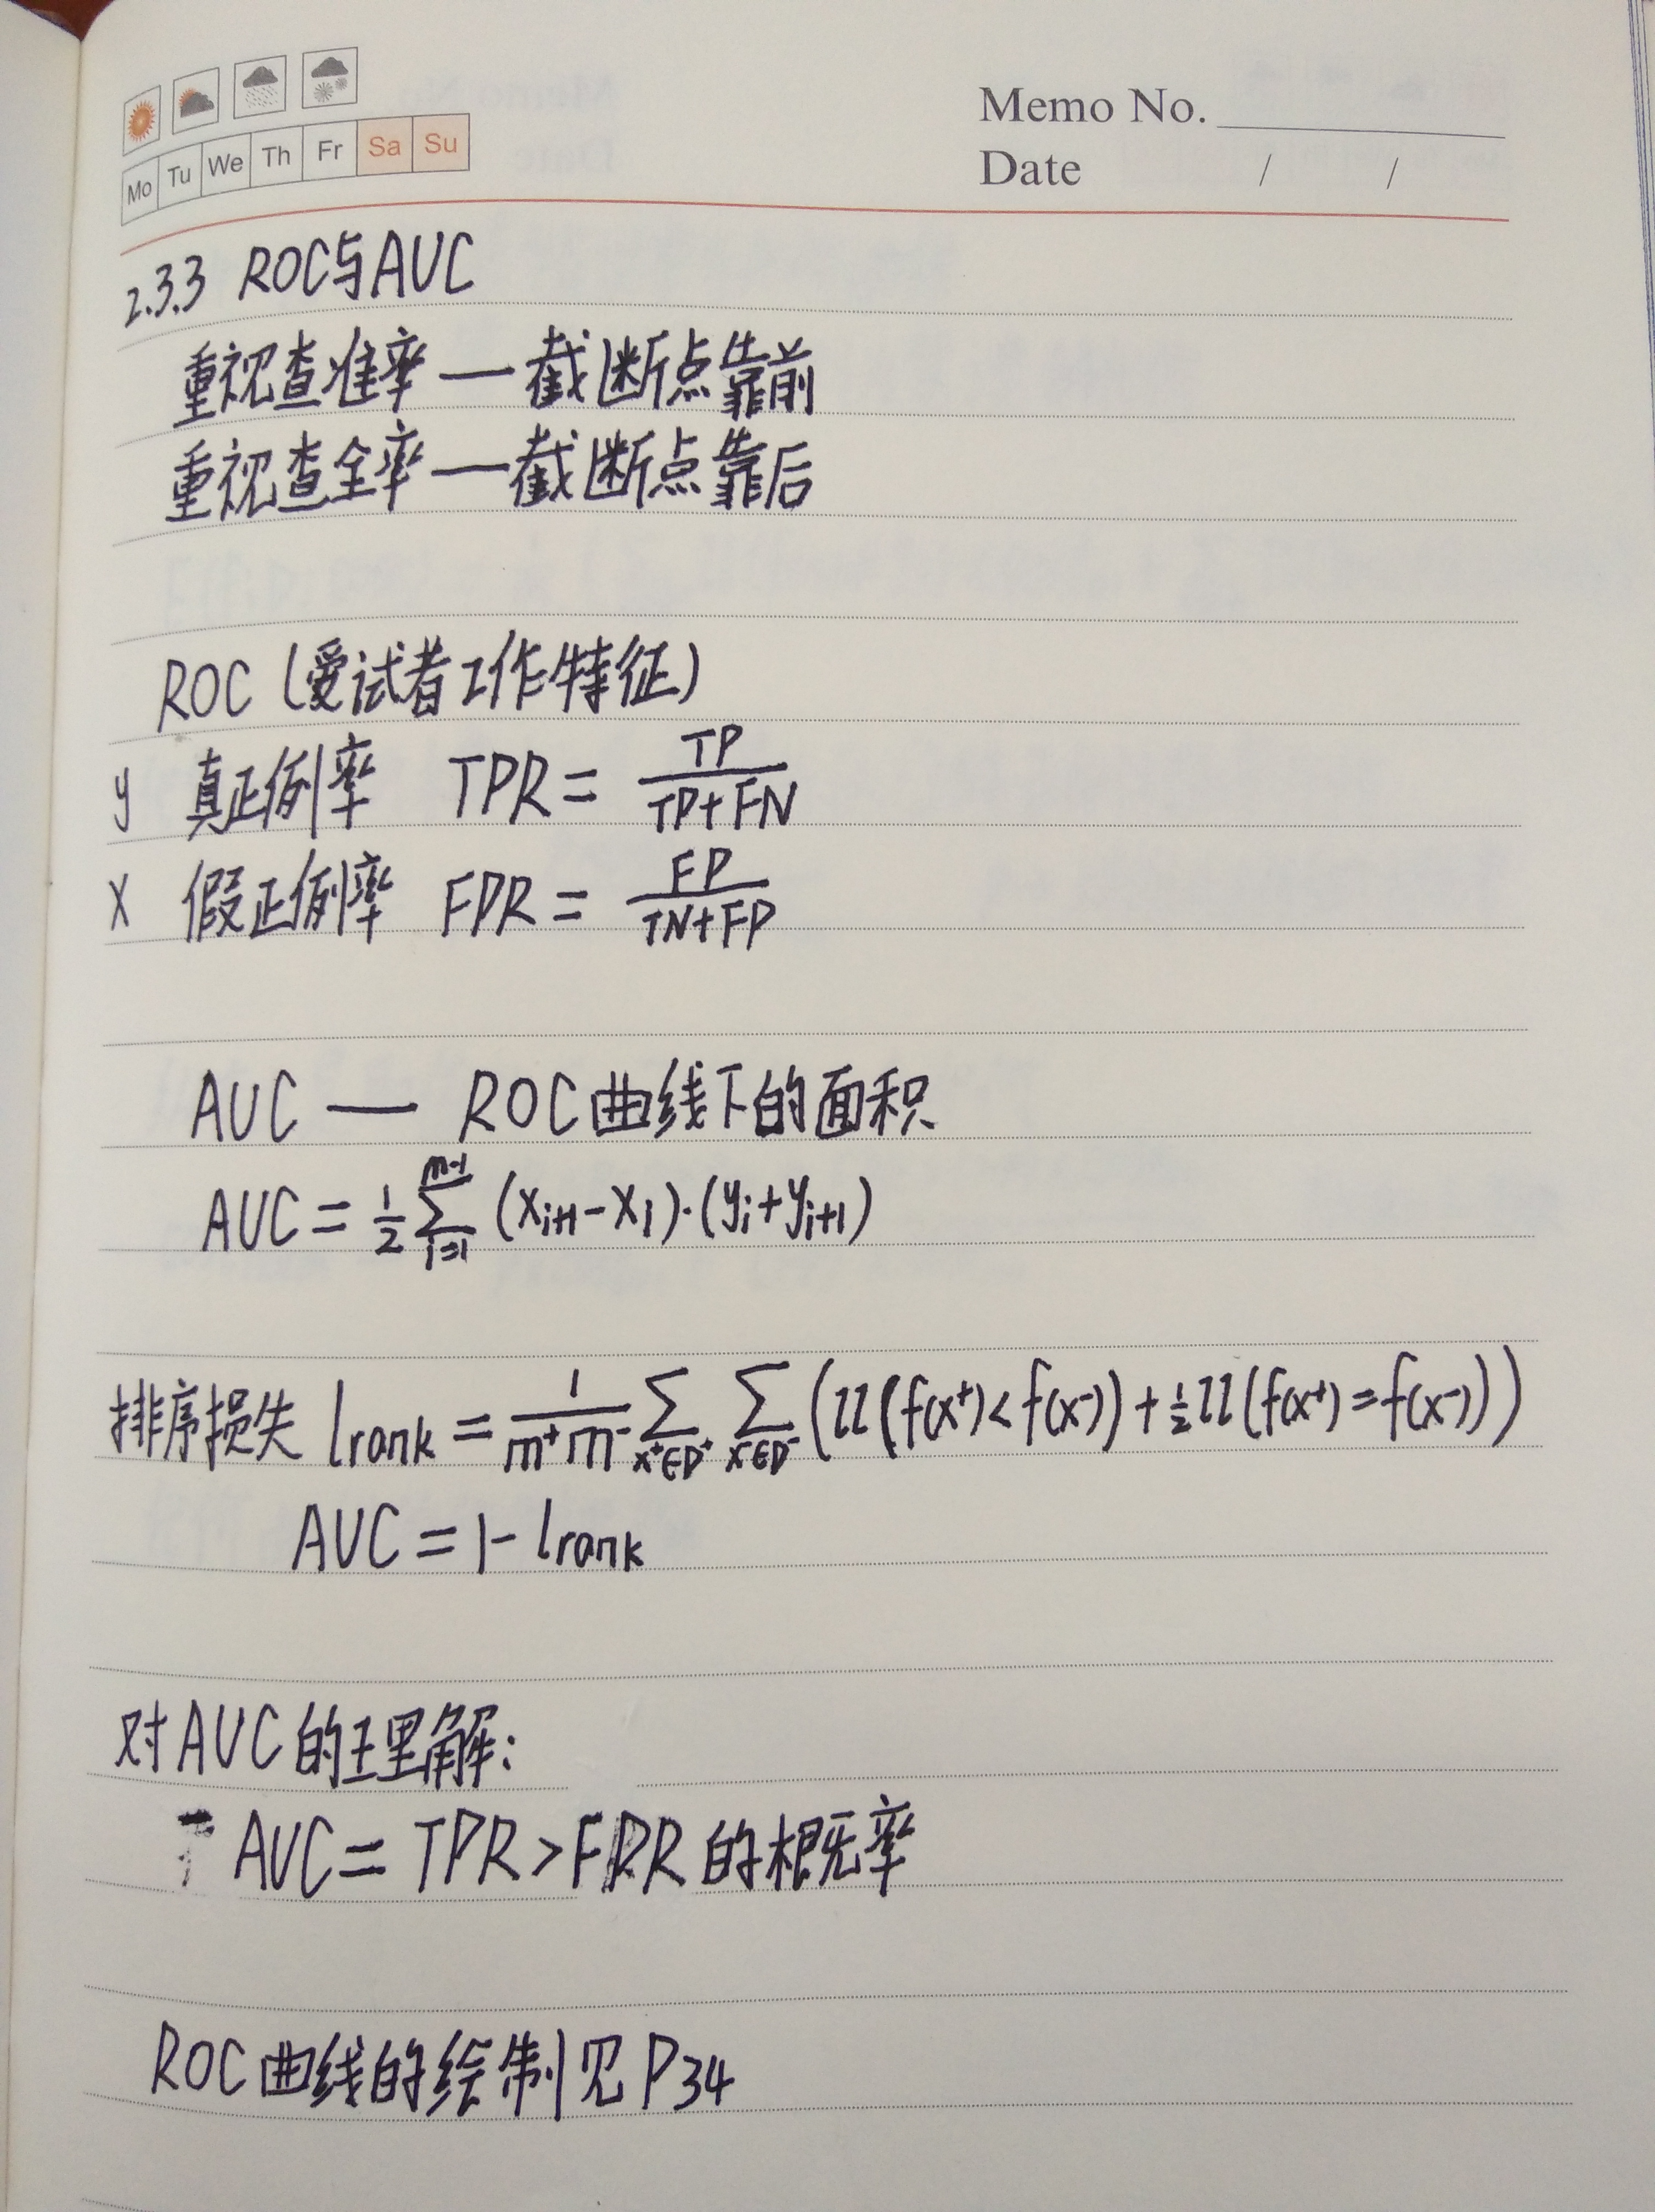 Memo No.
Mo Tu We Th Fr Sa Su
Date / /
2.3.3 ROC与AUC
重视查准率 — 截断点靠前
重视查全率 — 截断点靠后
ROC (受试者工作特征)
y 真正例率 TPR = TP/(TP+FN)
x 假正例率 FPR = FP/(TN+FP)
AUC — ROC曲线下的面积
AUC = ½ ∑_{i=1}^{m-1} (x_{i+1} - x_i)·(y_i + y_{i+1})
排序损失 l_rank = 1/(m⁺m⁻) ∑_{x⁺∈D⁺} ∑_{x⁻∈D⁻} (ll(f(x⁺) < f(x⁻)) + ½ ll(f(x⁺) = f(x⁻)))
AUC = 1 - l_rank
对AUC的理解:
AUC = TPR > FPR 的概率
ROC曲线的绘制见P34